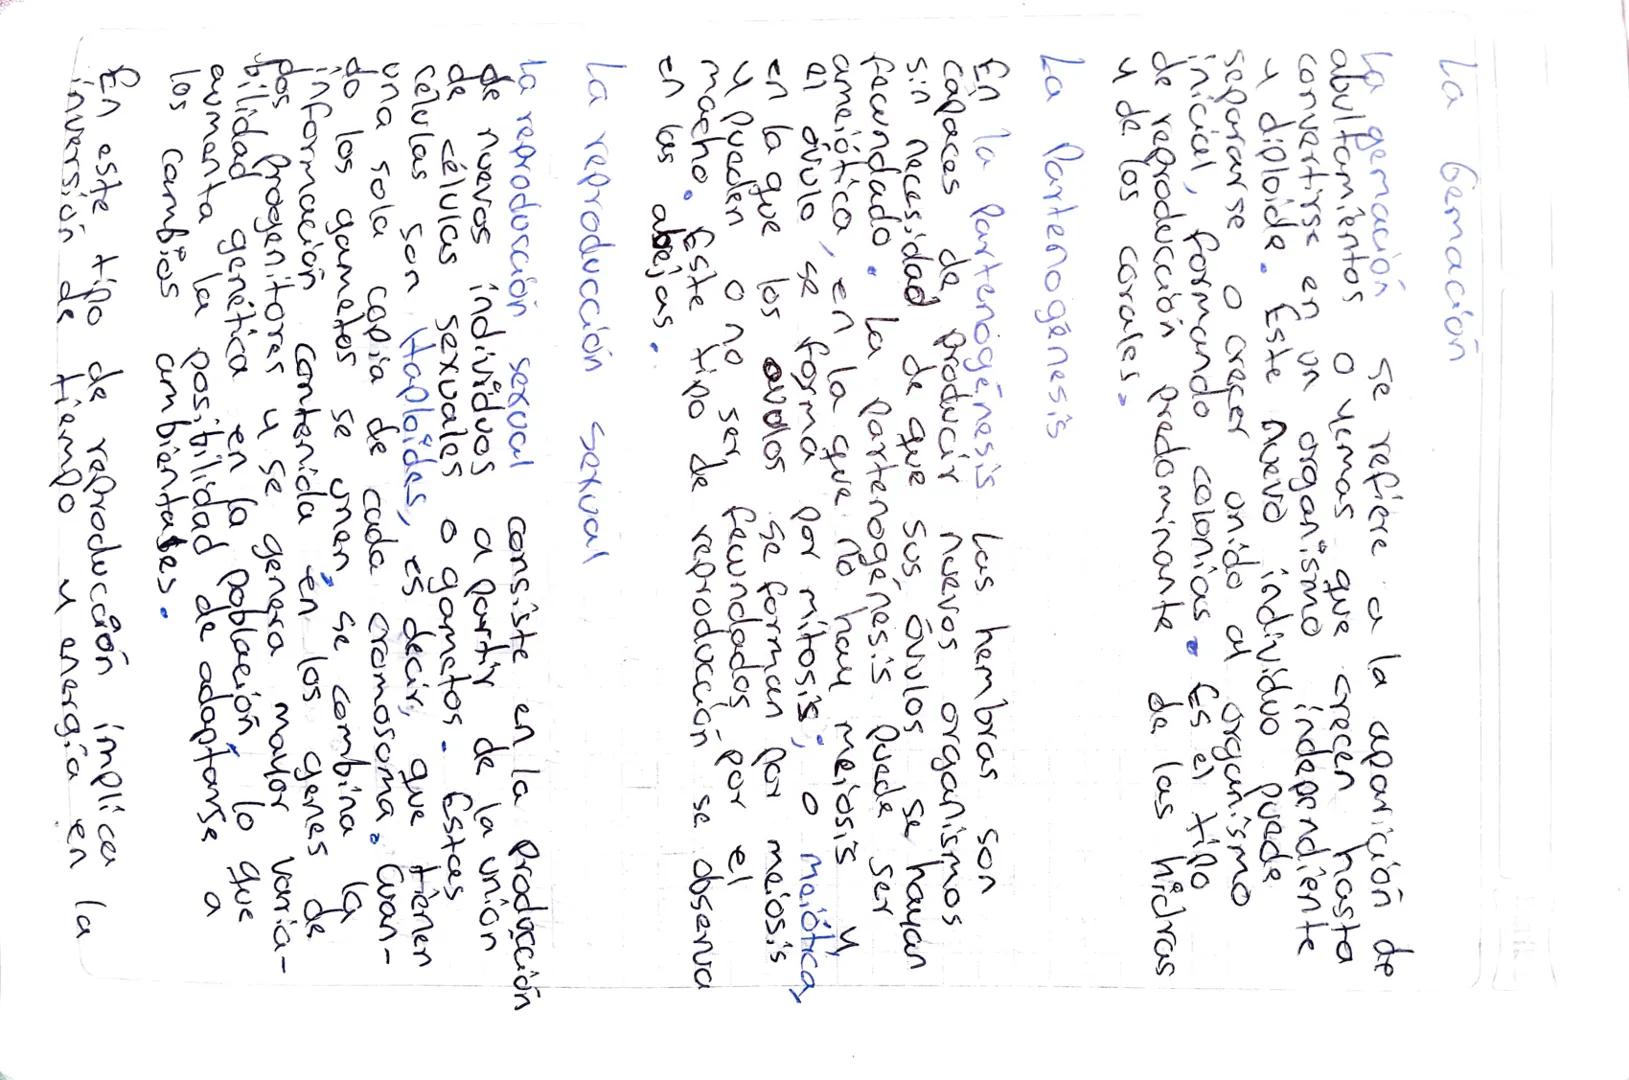 La Gemación
La gemación se refiere a la aparición de
abultamientos o yemas que crecen hasta
convertirse en un organismo independiente
y diploide. Este nuevo individuo puede
separarse o crecer unido al organismo
inicial, formando colonias. Es el tipo
de reproducción predominante de las hidras
y de los corales.
La Partenogénesis
En la Partenogénesis Las hembras son
capaces de producir nuevos organismos
sin necesidad de que sus óvulos se hayan
fecundado. La Partenogénesis puede ser
ameiótica, en la que no hay meiosis y
el óvulo se forma por mitosis; o meiótica,
en la que los ovulos se forman por meiosis
y pueden o no ser fecundados por el
macho. Este tipo de reproducción se observa
en las abejas.
La reproducción sexual
La reproducción sexual consiste en la producción
de nuevos individuos a partir de la unión
de células sexuales o gametos. Estas
células son Haploides, es decir, que tienen
una sola copia de cada cromosoma. Cuan-
do los gametos se unen, se combina la
información contenida en los genes de
dos progenitores y se genera mayor varia-
bilidad genética en la población, lo que
aumenta la posibilidad de adaptarse a
los cambios ambientales.
En este tipo de reproducción implica
inversión de tiempo y energía en la